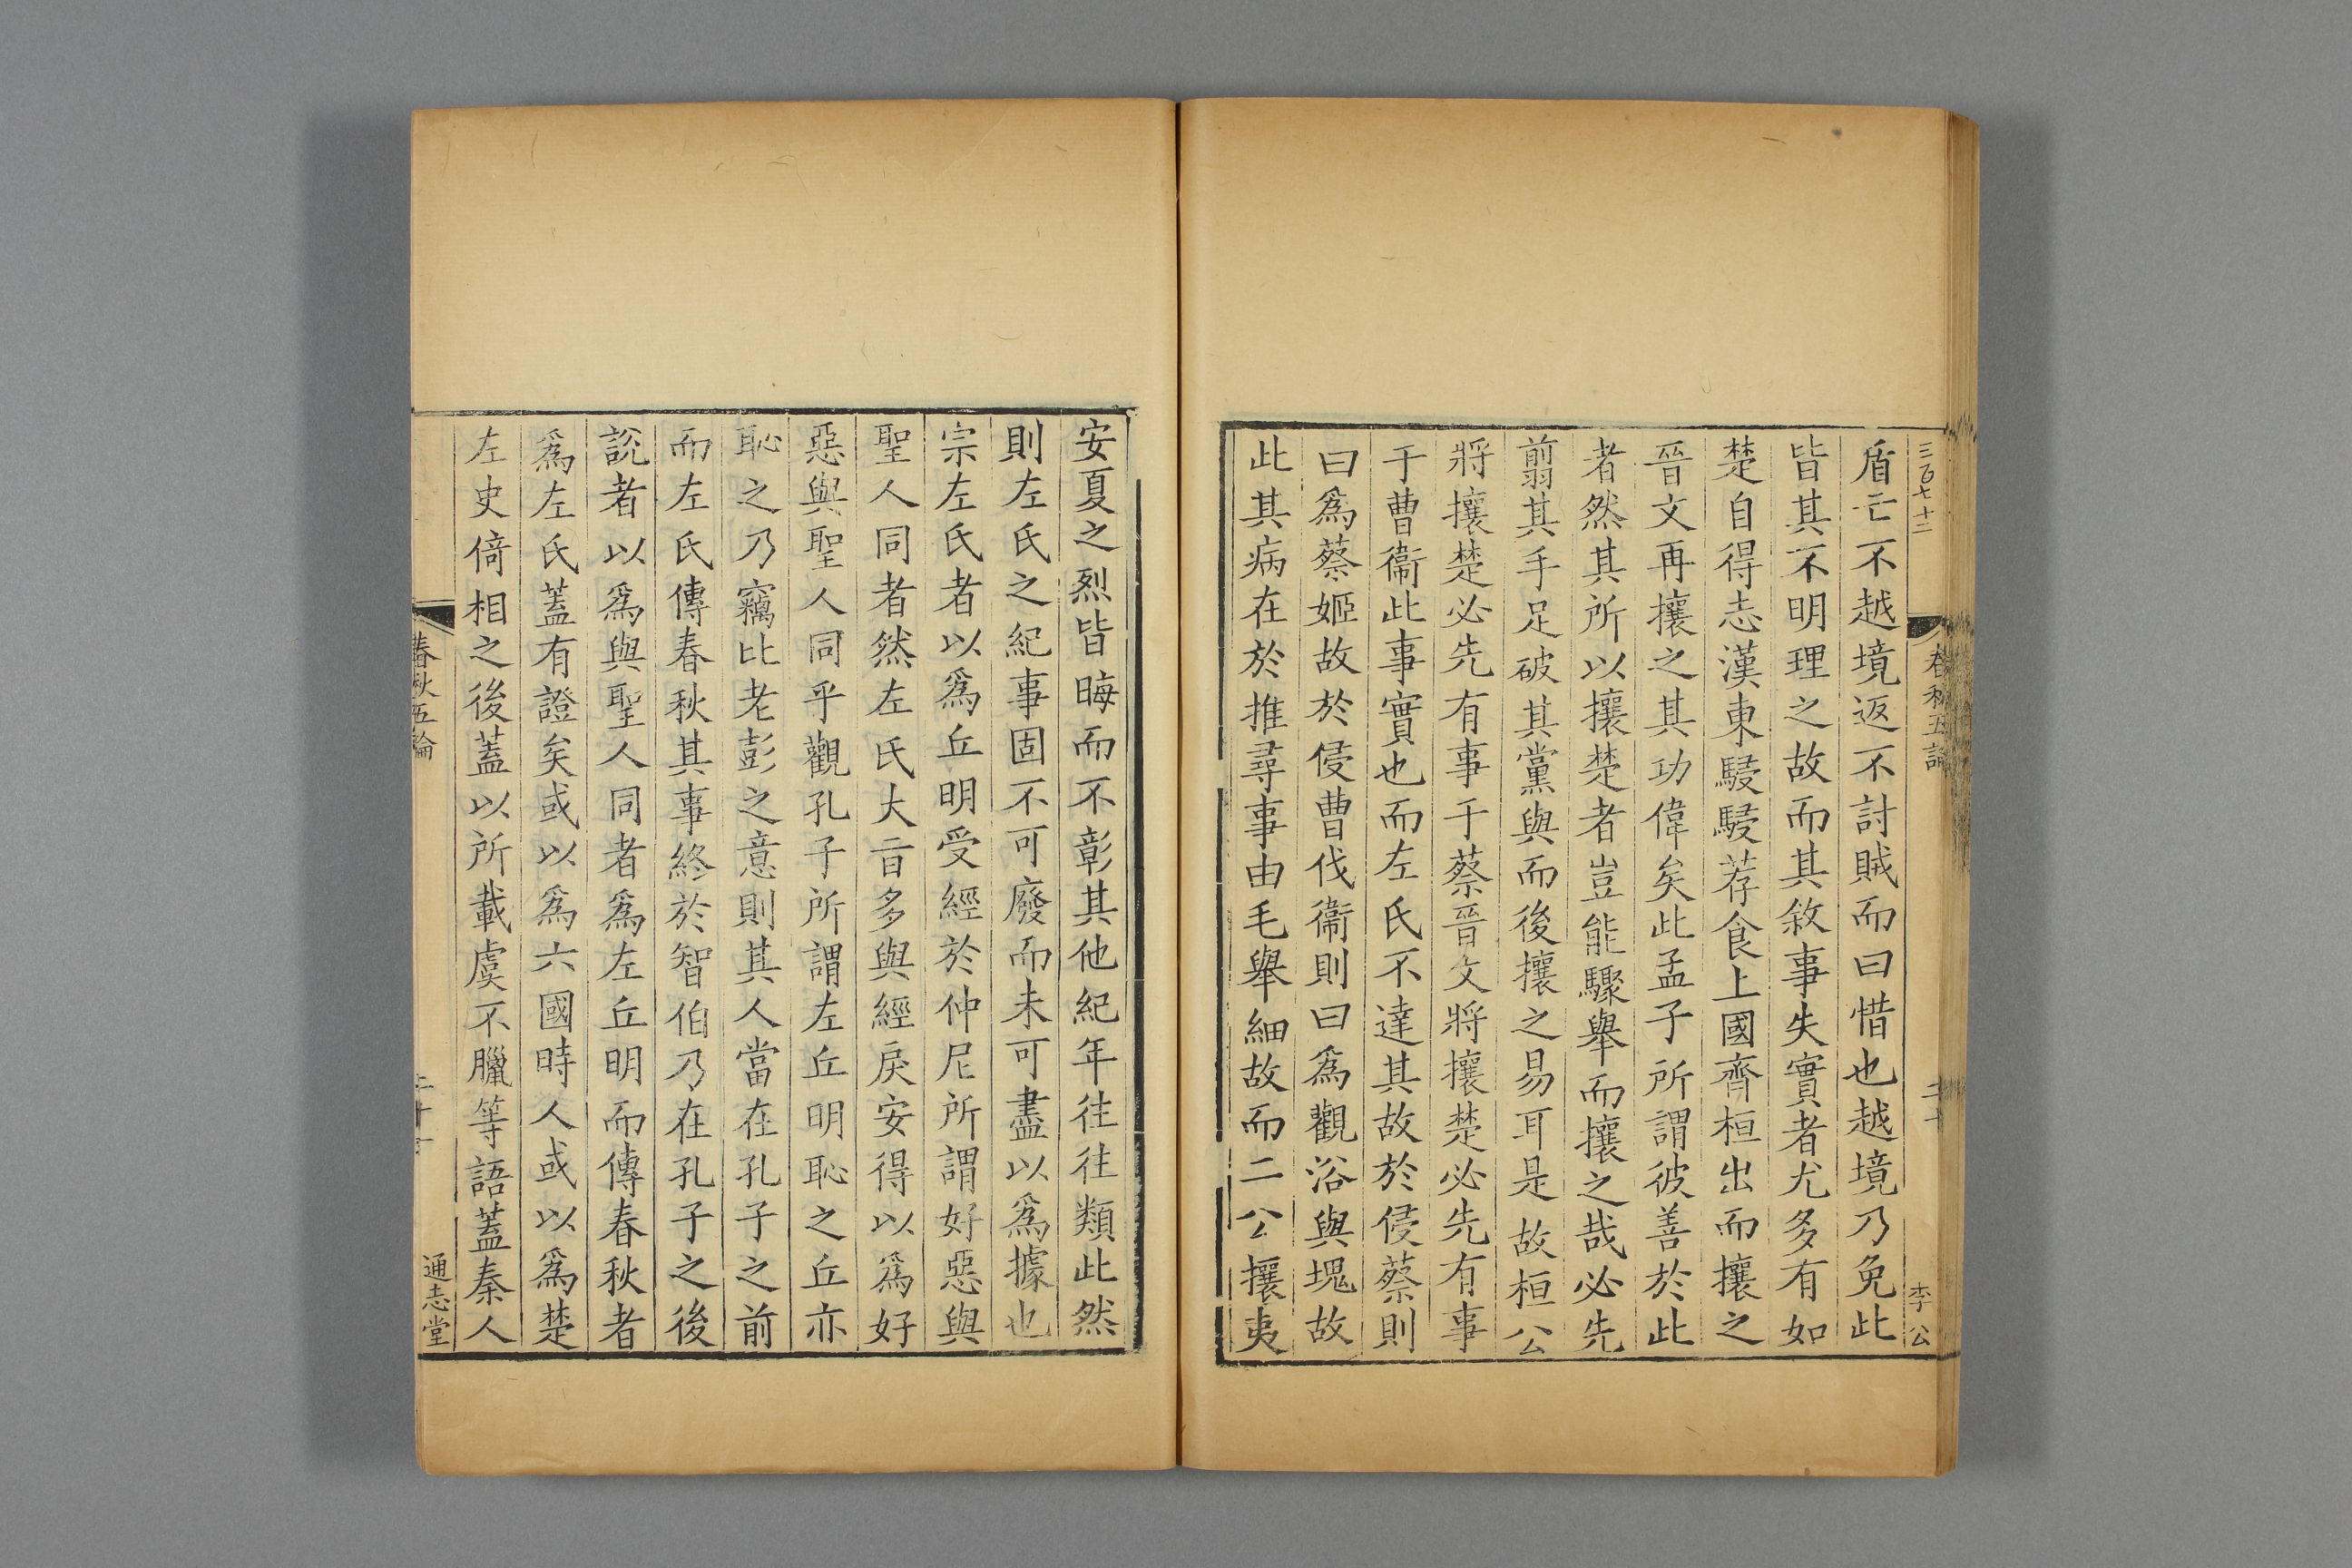 三百七十二
春秋五論
二十
李公
盾亡不越境返不討賊而曰惜也越境乃免此
皆其不明理之故而其敘事失實者尤多有如
楚自得志漢東駸駸荐食上國齊桓出而攘之
晉文再攘之其功偉矣此孟子所謂彼善於此
者然其所以攘楚者豈能驟舉而攘之哉必先
翦其手足破其黨與而後攘之易耳是故桓公
將攘楚必先有事于蔡晉文將攘楚必先有事
于曹衞此事實也而左氏不達其故於侵蔡則
曰爲蔡姬故於侵曹伐衞則曰爲觀浴與塊故
此其病在於推尋事由毛舉細故而二公攘夷
安夏之烈皆晦而不彰其他紀年徃徃類此然
則左氏之紀事固不可廢而未可盡以爲據也
宗左氏者以爲丘明受經於仲尼所謂好惡與
聖人同者然左氏大旨多與經戾安得以爲好
惡與聖人同乎觀孔子所謂左丘明恥之丘亦
恥之乃竊比老彭之意則其人當在孔子之前
而左氏傳春秋其事終於智伯乃在孔子之後
說者以爲與聖人同者爲左丘明而傳春秋者
爲左氏蓋有證矣或以爲六國時人或以爲楚
左史倚相之後蓋以所載虞不臘等語蓋秦人
春秋五論
通志堂